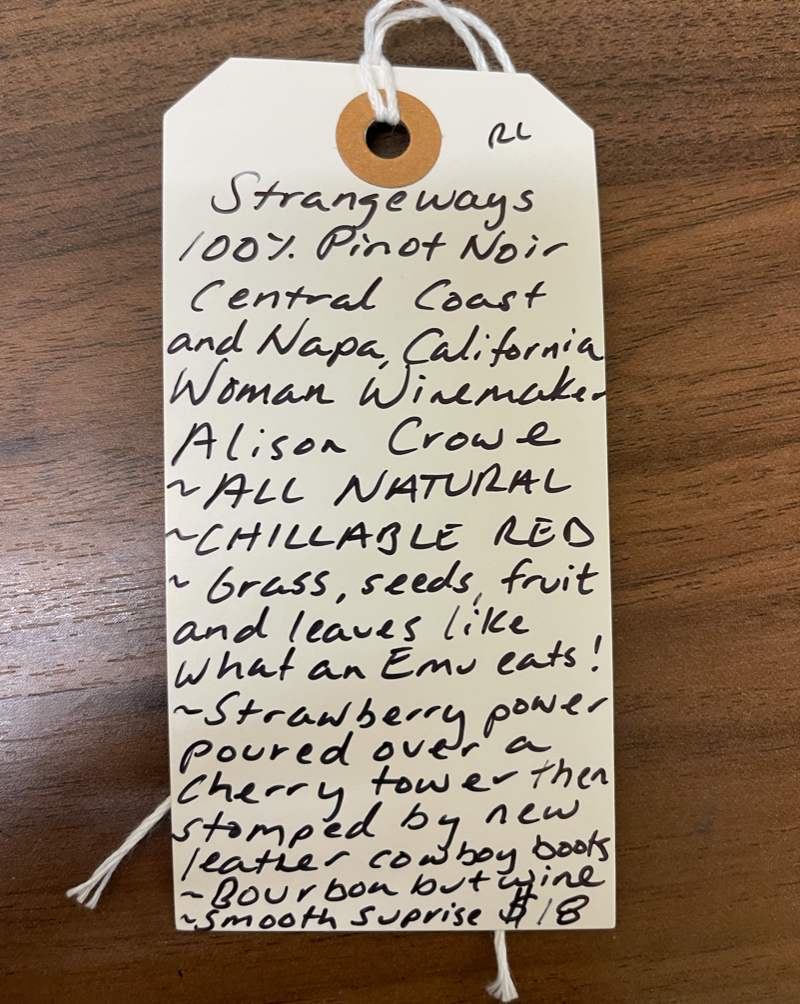 RL
Strangeways
100% Pinot Noir
Central Coast
and Napa, California
Woman Winemaker
Alison Crowe
~ALL NATURAL
~CHILLABLE RED
~ Grass, seeds, fruit
and leaves like
what an Emu eats!
~Strawberry power
poured over a
cherry tower then
stomped by new
leather cowboy boots
~Bourbon but wine
~smooth suprise $18